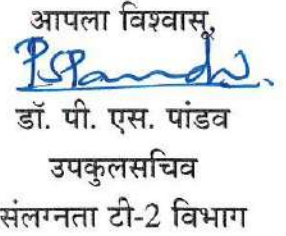 आपला विश्वासू,
डॉ. पी. एस. पांडव
उपकुलसचिव
संलग्नता टी-2 विभाग